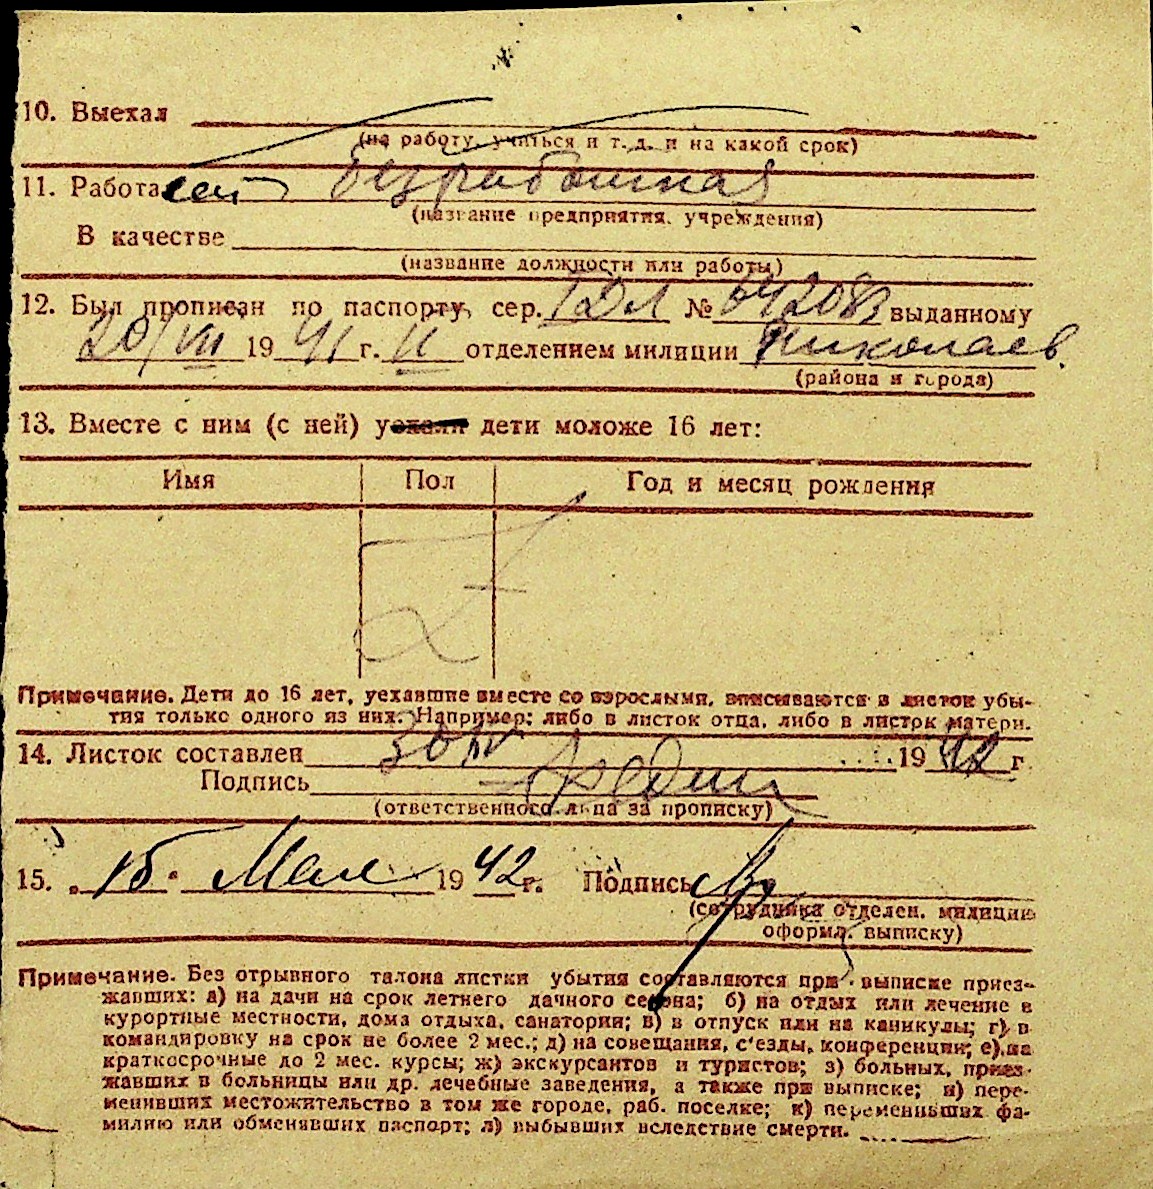 10. Выехал
(на работу, учиться и т. д. и на какой срок)
11. Работа безработная
(название предприятия, учреждения)
В качестве
(название должности или работы)
12. Был прописан по паспорту, сер. № выданному
20/VII 19 41 г. 11 отделением милиции Николаев.
(района и города)
13. Вместе с ним (с ней) уехали дети моложе 16 лет:
Имя Пол Год и месяц рождения
Примечание. Дети до 16 лет, уехавшие вместе со взрослыми, вписываются в листок убы-
тия только одного из них. Например: либо в листок отца, либо в листок матери.
14. Листок составлен 30/IV 19 42 г.
Подпись
(ответственного лица за прописку)
15. 15. Мая 19 42 г. Подпись
(сотрудника отделен. милиции
оформл. выписку)
Примечание. Без отрывного талона листки убытия составляются при выписке приез-
жавших: а) на дачи на срок летнего дачного сезона; б) на отдых или лечение в
курортные местности, дома отдыха, санатории; в) в отпуск или на каникулы; г) в
командировку на срок не более 2 мес.; д) на совещания, с'езды, конференции; е) на
краткосрочные до 2 мес. курсы; ж) экскурсантов и туристов; з) больных, приез-
жавших в больницы или др. лечебные заведения, а также при выписке; и) пере-
менивших местожительство в том же городе, раб. поселке; к) переменивших фа-
милию или обменявших паспорт; л) выбывших вследствие смерти.